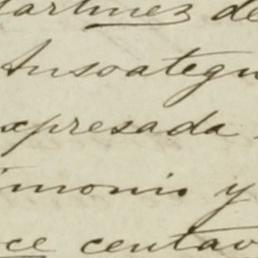 artinez de
Ansoategu
xpresada
imonio y
ce centav